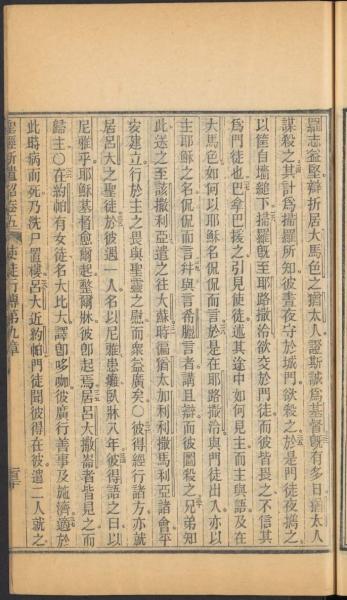 羅志益堅辯折居大馬色之猶太人證斯誠為基督旣有多日猶太人
謀殺之其計為掃羅所知彼晝夜守於城門欲殺之於是門徒夜搗之
以筐自墻縋下掃羅旣至耶路撒冷欲交於門徒而彼皆畏之不信其
為門徒也巴拿巴援之引見使徒述其途中如何見主而主與語及在
大馬色如何以耶穌名侃侃而言於是在耶路撒冷與門徒出入亦以
主耶穌之名侃侃而言幷與言希臘言者講且辯而彼圖殺之兄弟知
此送之至該撒利亞遣之往大蘇時徧猶太加利利撒馬利亞諸會平
安建立行於主之畏與聖靈之慰而衆益廣矣〇彼得經行諸方亦就
居呂大之聖徒於彼遇一人名以尼雅患癱臥牀八年彼得語之曰以
尼雅乎耶穌基督愈爾起整爾牀彼卽起焉居呂大撒崙者皆見之而
歸主〇在約帕有女徒名大比大譯卽哆咖彼廣行善事及施濟適於
此時病而死乃洗尸置樓呂大近約帕門徒聞彼得在彼遣二人就之
聖經新遺詔卷五 使徒行傳第九章